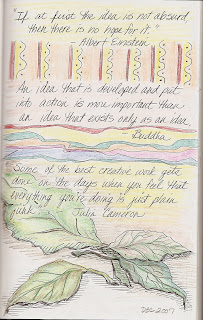 "If at first the idea is not absurd,
then there is no hope for it."
- Albert Einstein
An idea that is developed and put
into action is more important than
an idea that exists only as an idea.
Buddha
Some of the best creative work gets
done on the days when you feel that
everything you're doing is just plain
junk. Julia Cameron
2007